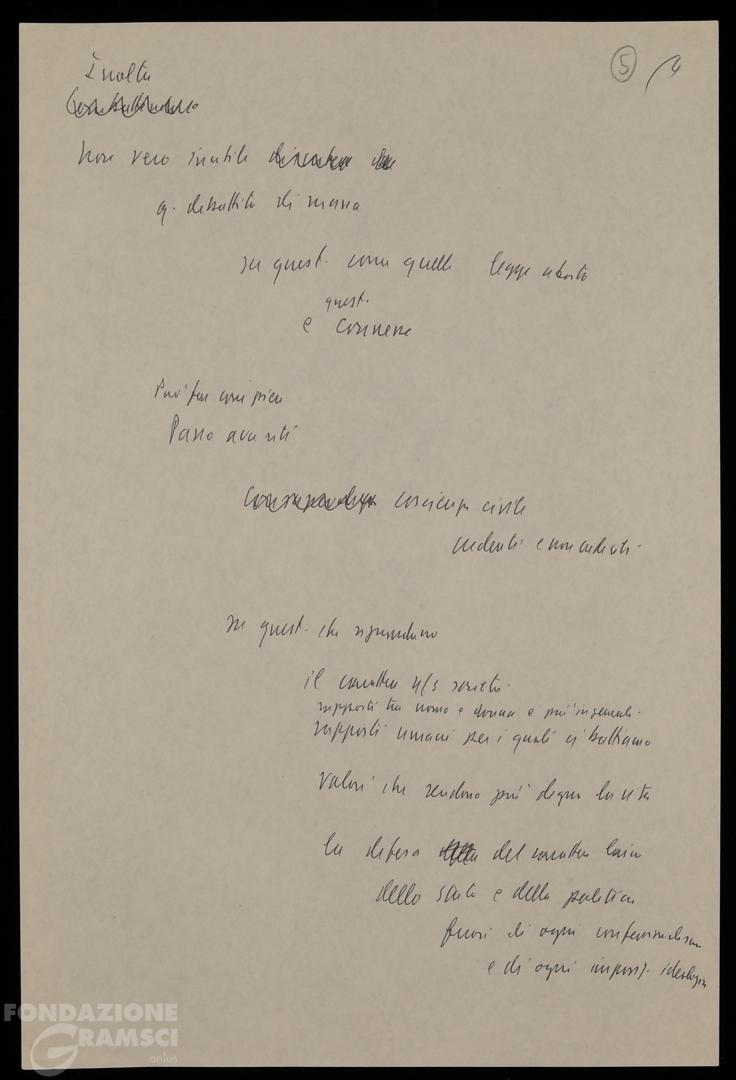 Inoltre
5 /4
non vero inutile
q. dibattito di massa
su quest. come quelle legge aborto
quest.
e connesse
Può far compiere
Passo avanti
coscienza civile
credenti e non credenti
su quest. che riguardano
il carattere n/s società
rapporti tra uomo e donna e più in generale
rapporti umani per i quali ci battiamo
valori che rendono più degna la vita
la difesa del carattere laico
dello Stato e della politica
fuori di ogni confessionalismo
e di ogni impost. ideologica
FONDAZIONE
GRAMSCI
onlus